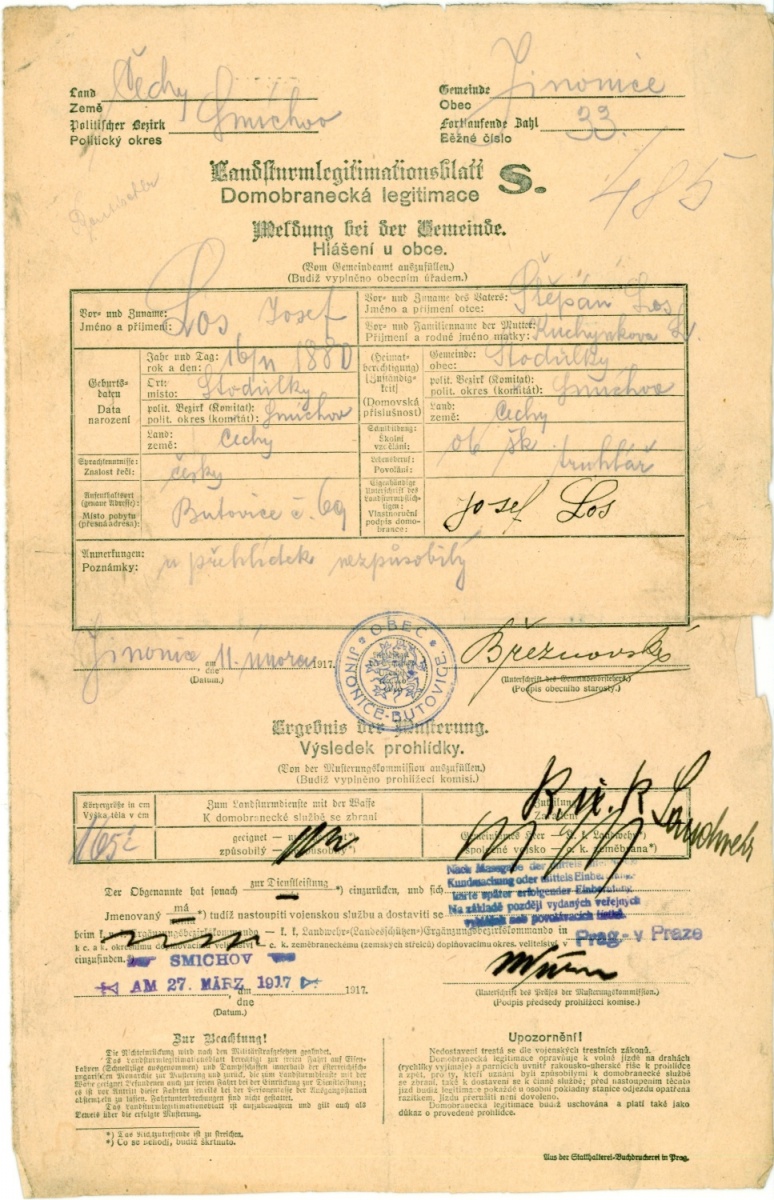 Land Čechy
Země
Politischer Bezirk Smíchov
Politický okres
Gemeinde Jinonice
Obec
Fortlaufende Zahl 33.
Běžné číslo
Landsturmlegitimationsblatt S.
Domobranecká legitimace
485
Meldung bei der Gemeinde.
Hlášení u obce.
(Vom Gemeindeamt auszufüllen.)
(Budiž vyplněno obecním úřadem.)
Vor- und Zuname: Los Josef
Jméno a příjmení:
Vor- und Zuname des Vaters: Štěpán Los
Jméno a příjmení otce:
Vor- und Familienname der Mutter: Kuchynkova
Příjmení a rodné jméno matky:
Geburtsdaten
Data narození
Jahr und Tag: 1880
rok a den:
Ort: Stodůlky
místo:
polit. Bezirk (Komitat): Smíchov
polit. okres (komitát):
Land: Čechy
země:
(Heimatberechtigung) (Zuständigkeit)
(Domovská příslušnost)
Gemeinde: Stodůlky
obec:
polit. Bezirk (Komitat): Smíchov
polit. okres (komitát):
Land: Čechy
země:
Sprachkenntnisse: česky
Znalost řečí:
Schulbildung: ob. šk.
Školní vzdělání:
Lebensberuf: truhlář
Povolání:
Aufenthaltsort (genaue Adresse): Butovice č. 69
Místo pobytu (přesná adresa):
Eigenhändige Unterschrift des Landsturmpflichtigen: Josef Los
Vlastnoruční podpis domobrance:
Anmerkungen: u přehlídek nezpůsobilý
Poznámky:
Jinonice am 11. února 1917.
dne
(Datum.)
OBEC JINONICE-BUTOVICE.
Březnovský
(Unterschrift des Gemeindevorstehers.)
(Podpis obecního starosty.)
Ergebnis der Musterung.
Výsledek prohlídky.
(Von der Musterungskommission auszufüllen.)
(Budiž vyplněno prohlížecí komisí.)
Körpergröße in cm
Výška těla v cm
165
Zum Landsturmdienste mit der Waffe
K domobranecké službě se zbraní
geeignet
způsobilý
K. k. Landwehr
Gemeinsames Heer — k. k. Landwehr*)
společné vojsko — c. k. zeměbrana*)
Der Obgenannte hat sonach zur Dienstleistung *) einzurücken, und sich
Nach Massgabe der mittels
Kundmachung oder mittels Einberufungs-
karte später erfolgender Einberufung.
Na základě později vydaných veřejných
vyhlášek neb povolávacích lístků.
Jmenovaný má *) tudíž nastoupiti vojenskou službu a dostaviti se
beim k. u. k. Ergänzungsbezirkskommando — k. k. Landwehr-(Landesschützen)-Ergänzungsbezirkskommando in
k c. a k. okresnímu doplňovacímu velitelství — c. k. zeměbraneckému (zemských střelců) doplňovacímu okres. velitelství v
Prag - v Praze
einzufinden.
SMICHOV
AM 27. MÄRZ 1917
am 1917.
dne
(Datum.)
(Unterschrift des Präses der Musterungskommission.)
(Podpis předsedy prohlížecí komise.)
Zur Beachtung!
Die Nichteinrückung wird nach den Militärstrafgesetzen geahndet.
Das Landsturmlegitimationsblatt berechtigt zur freien Fahrt auf Eisen-
bahnen (Schnellzüge ausgenommen) und Dampfschiffen innerhalb der österreichisch-
ungarischen Monarchie zur Musterung und zurück, die zum Landsturmdienste mit der
Waffe geeignet Befundenen auch zur freien Fahrt bei der Einrückung zur Dienstleistung;
es ist vor Antritt dieser Fahrt bei der Personenkasse der Ausgangsstation
abstempeln zu lassen. Fahrtunterbrechungen sind nicht gestattet.
Das Landsturmlegitimationsblatt ist aufzubewahren und gilt auch als
Beweis über die erfolgte Musterung.
*) Das Nichtzutreffende ist zu streichen.
*) Co se nehodí, budiž škrtnuto.
Upozornění!
Nedostavení trestá se dle vojenských trestních zákonů.
Domobranecká legitimace opravňuje k volné jízdě na drahách
(rychlíky vyjímaje) a parnících uvnitř rakousko-uherské říše k prohlídce
a zpět, pro ty, kteří uznáni byli způsobilými k domobranecké službě
se zbraní, také k dostavení se k činné službě; před nastoupením této
jízd budiž legitimace u osobní pokladny stanice odjezdu opatřena
razítkem. Jízdu přerušiti není dovoleno.
Domobranecká legitimace budiž uschována a platí také jako
důkaz o provedené prohlídce.
Aus der Statthalterei-Buchdruckerei in Prag.